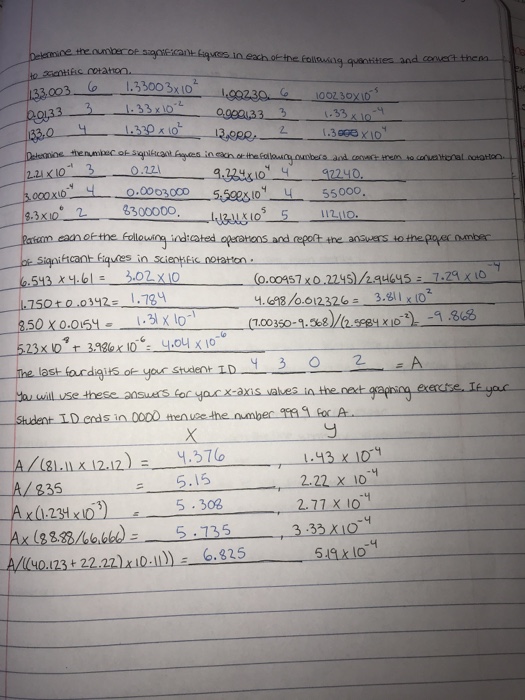 Determine the number of significant figures in each of the following quantities and convert them
to scientific notation.
133.003 6 1.33003x10² 1.00230 6 100230x10⁻⁵
0.0133 3 1.33x10⁻² 0.000133 3 1.33x10⁻⁴
133.0 4 1.330x10² 13,000. 2 1.3 x10⁴
Determine the number of significant figures in each of the following numbers and convert them to conventional notation.
2.21x10⁻¹ 3 0.221 9.224x10⁴ 4 92240.
3.000x10⁻⁴ 4 0.0003000 5.500x10⁴ 4 55000.
8.3x10⁶ 2 8300000. x10⁵ 5 112,110.
Perform each of the following indicated operations and report the answers to the proper number
of significant figures in scientific notation.
6.543 x 4.61 = 3.02x10 (0.00957x0.2245)/2.94645 = 7.29x10⁻⁴
1.750+0.0342= 1.784 4.698/0.012326= 3.811x10²
8.50 x 0.0154= 1.31x10⁻¹ (7.00350-9.568)/(2.5984x10⁻²)= -9.868
5.23x10⁻⁸ + 3.986x10⁻⁶= 4.04x10⁻⁶
The last four digits of your student ID 4 3 0 2 = A
You will use these answers for your x-axis values in the next graphing exercise. If your
Student ID ends in 0000 then use the number 9999 for A.
X y
A/(81.11 x 12.12) = 4.376, 1.43 x 10⁻⁴
A/835 = 5.15 2.22 x 10⁻⁴
Ax(1.234x10⁻³) = 5.308 2.77 x 10⁻⁴
Ax(88.88/66.666) = 5.735, 3.33x10⁻⁴
A/((40.123+22.22)x10.11)) = 6.825 5.19x10⁻⁴